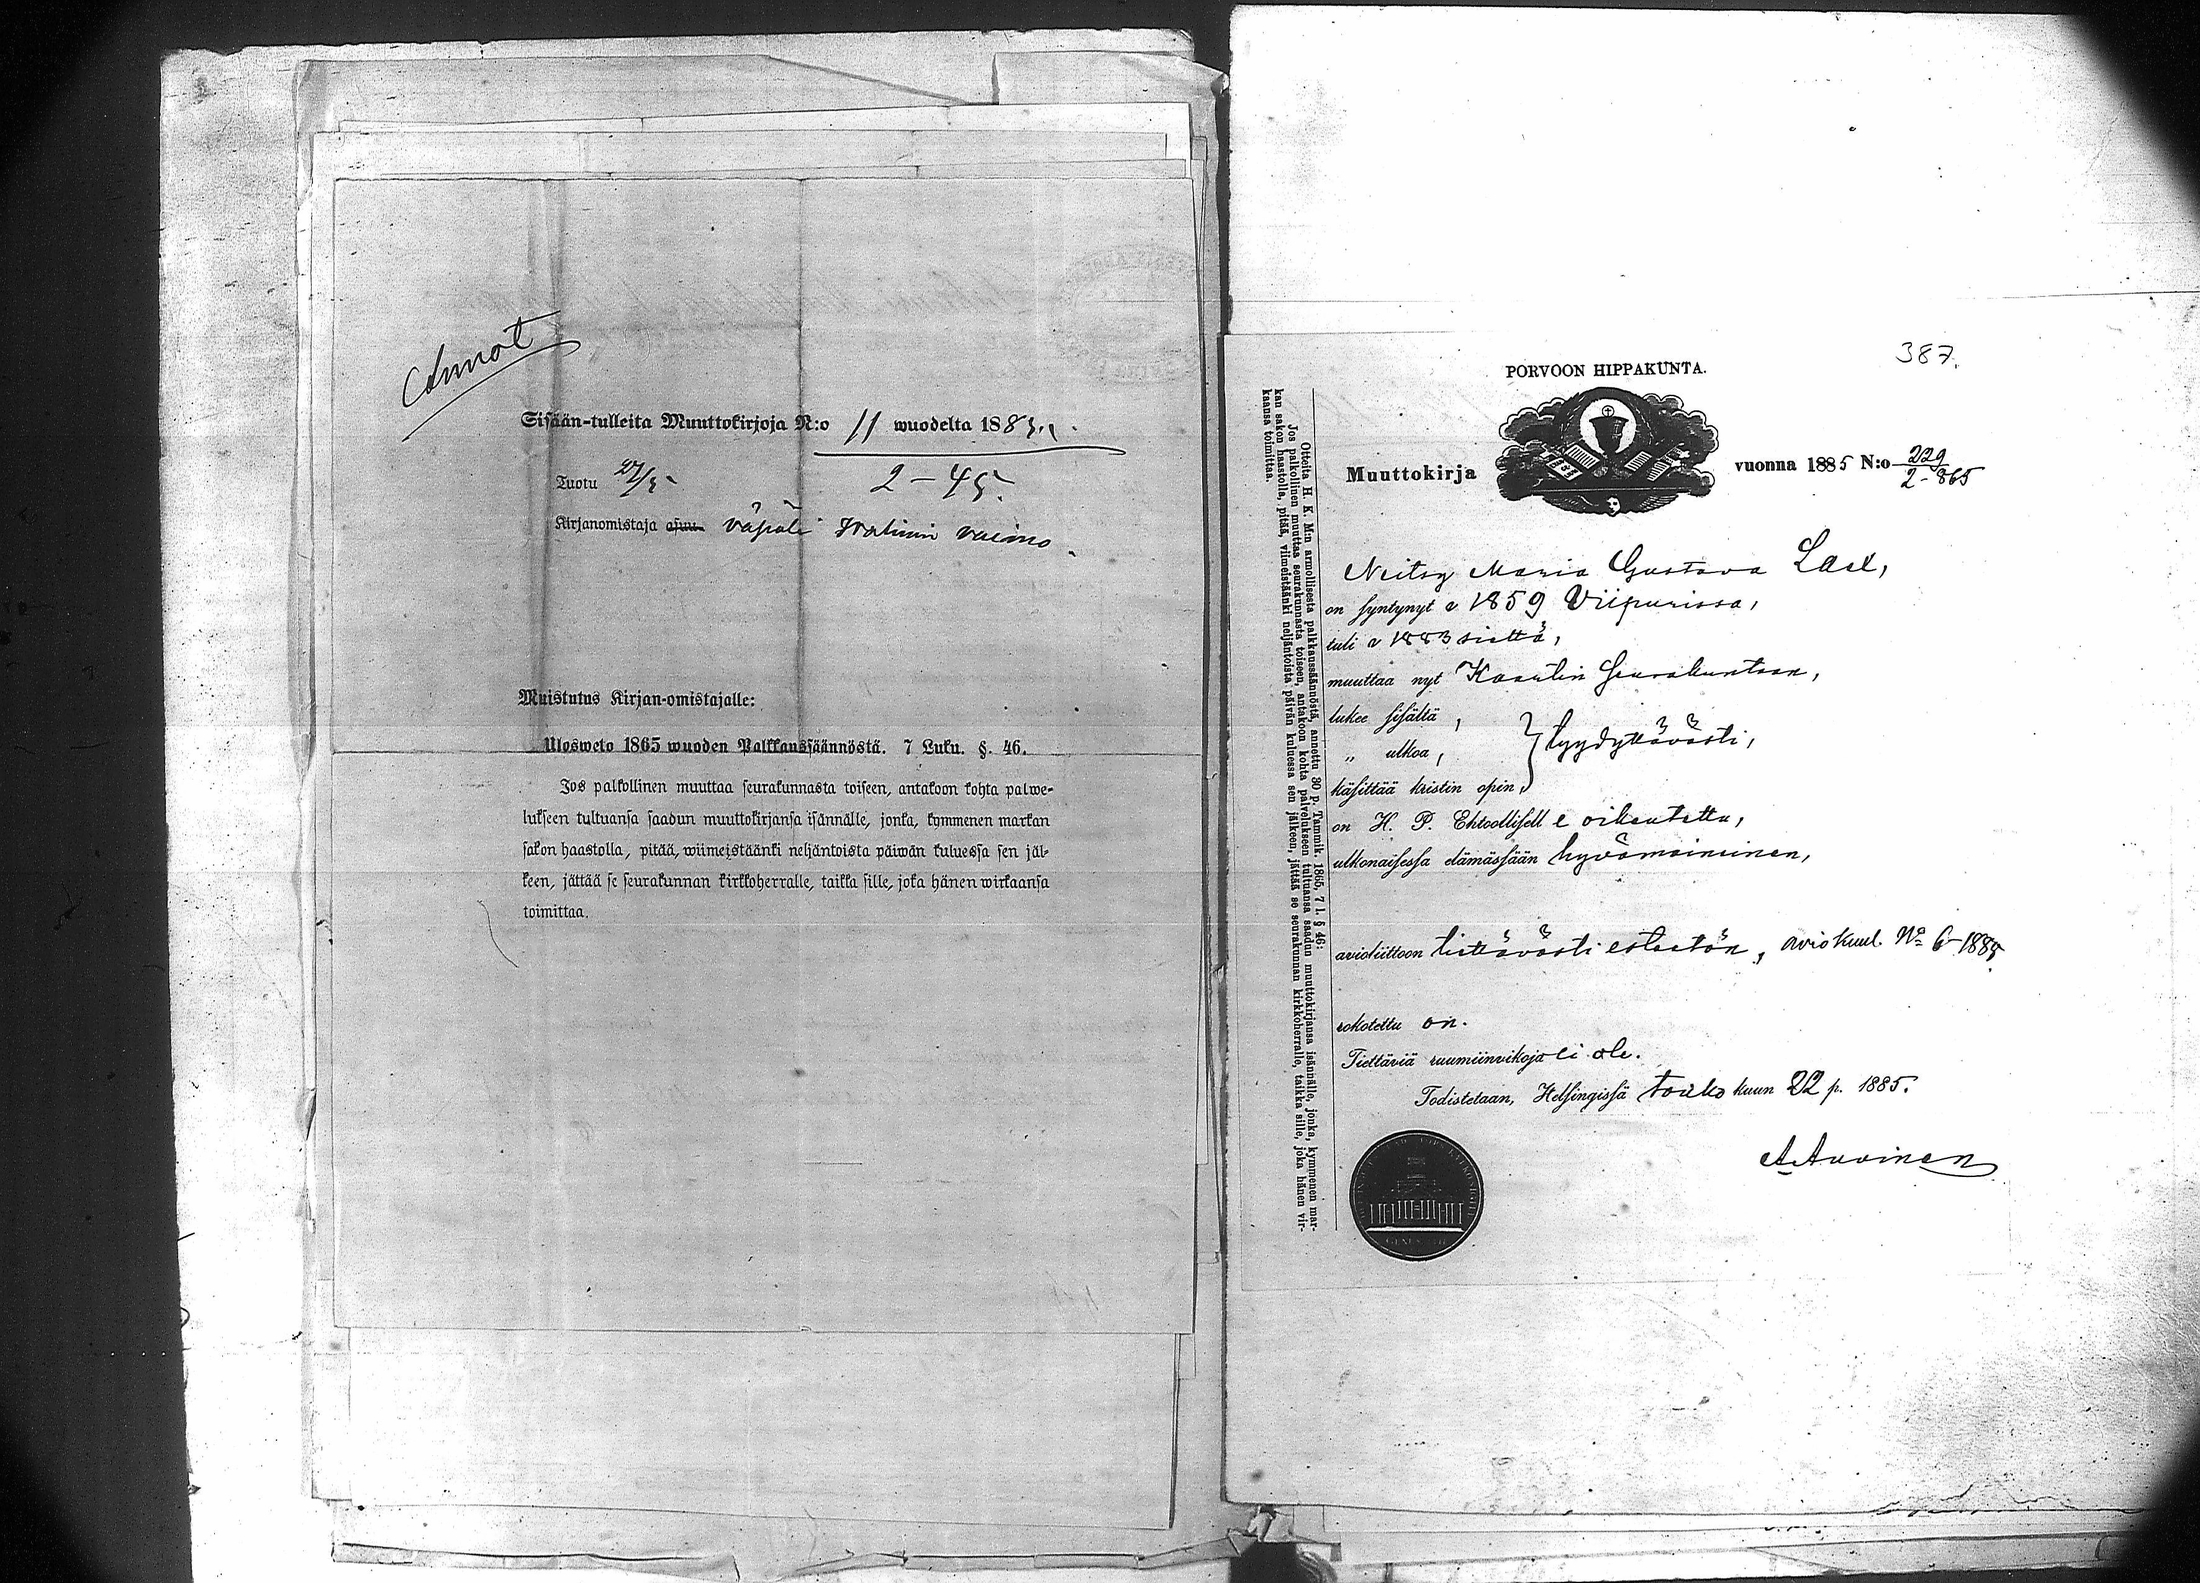 Sisään-tulleita Muuttokirjoja N:o 11 wuodelta 1885.
Tuotu 27/5
2-45.
Kirjanomistaja asuu vaimo
Muistutus Kirjan-omistajalle:
Ulosweto 1865 wuoden Palkkaussäännöstä. 7 Luku. §. 46.
Jos palkollinen muuttaa seurakunnasta toiseen, antakoon kohta palwe-
lukseen tultuansa saadun muuttokirjansa isännälle, jonka, kymmenen markan
sakon haastolla, pitää, wiimeistäänki neljäntoista päiwän kuluessa sen jäl-
keen, jättää se seurakunnan kirkkoherralle, taikka sille, joka hänen wirkaansa
toimittaa.
387.
PORVOON HIPPAKUNTA.
Muuttokirja vuonna 1885 N:o 229
2-865
Otteita H. K. M:n armollisesta palkkaussäännöstä, annettu 30 p. Tammik. 1865, 7 l. § 46:
Jos palkollinen muuttaa seurakunnasta toiseen, antakoon kohta palvelukseen tultuansa saadun muuttokirjansa isännälle, jonka, kymmenen mar-
kan sakon haastolla, pitää, viimeistäänki neljäntoista päivän kuluessa sen jälkeen, jättää se seurakunnan kirkkoherralle, taikka sille, joka hänen vir-
kaansa toimittaa.
Neitsy Maria Gustava
on syntynyt v 1859 Viipurissa,
tuli v 1883 sieltä,
muuttaa nyt Kaanlin Seurakuntaan,
lukee sisältä,
" ulkoa, } tyydyttävästi,
käsittää kristin opin,
on H. P. Ehtoollisella oikeutettu,
ulkonaisessa elämässään hyvämaineinen,
avioliittoon tiettävästi esteetön, aviokuul. No 6-1885
rokotettu on.
Tiettäviä ruumiinvikoja ei ole.
Todistetaan, Helsingissä touko kuun 22 p. 1885.
A Auvinen